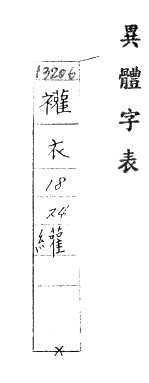 異體字表
13206
衣
18
24
×